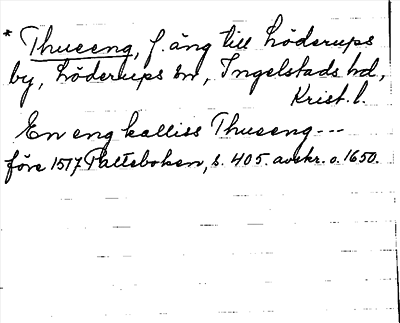 * Thuseng, f. äng till Löderups
by, Löderups sn, Ingelstads hd,
Krist. l.
En eng kalliss Thuseng ---
före 1517 Palteboken, s. 405. avskr. o. 1650.